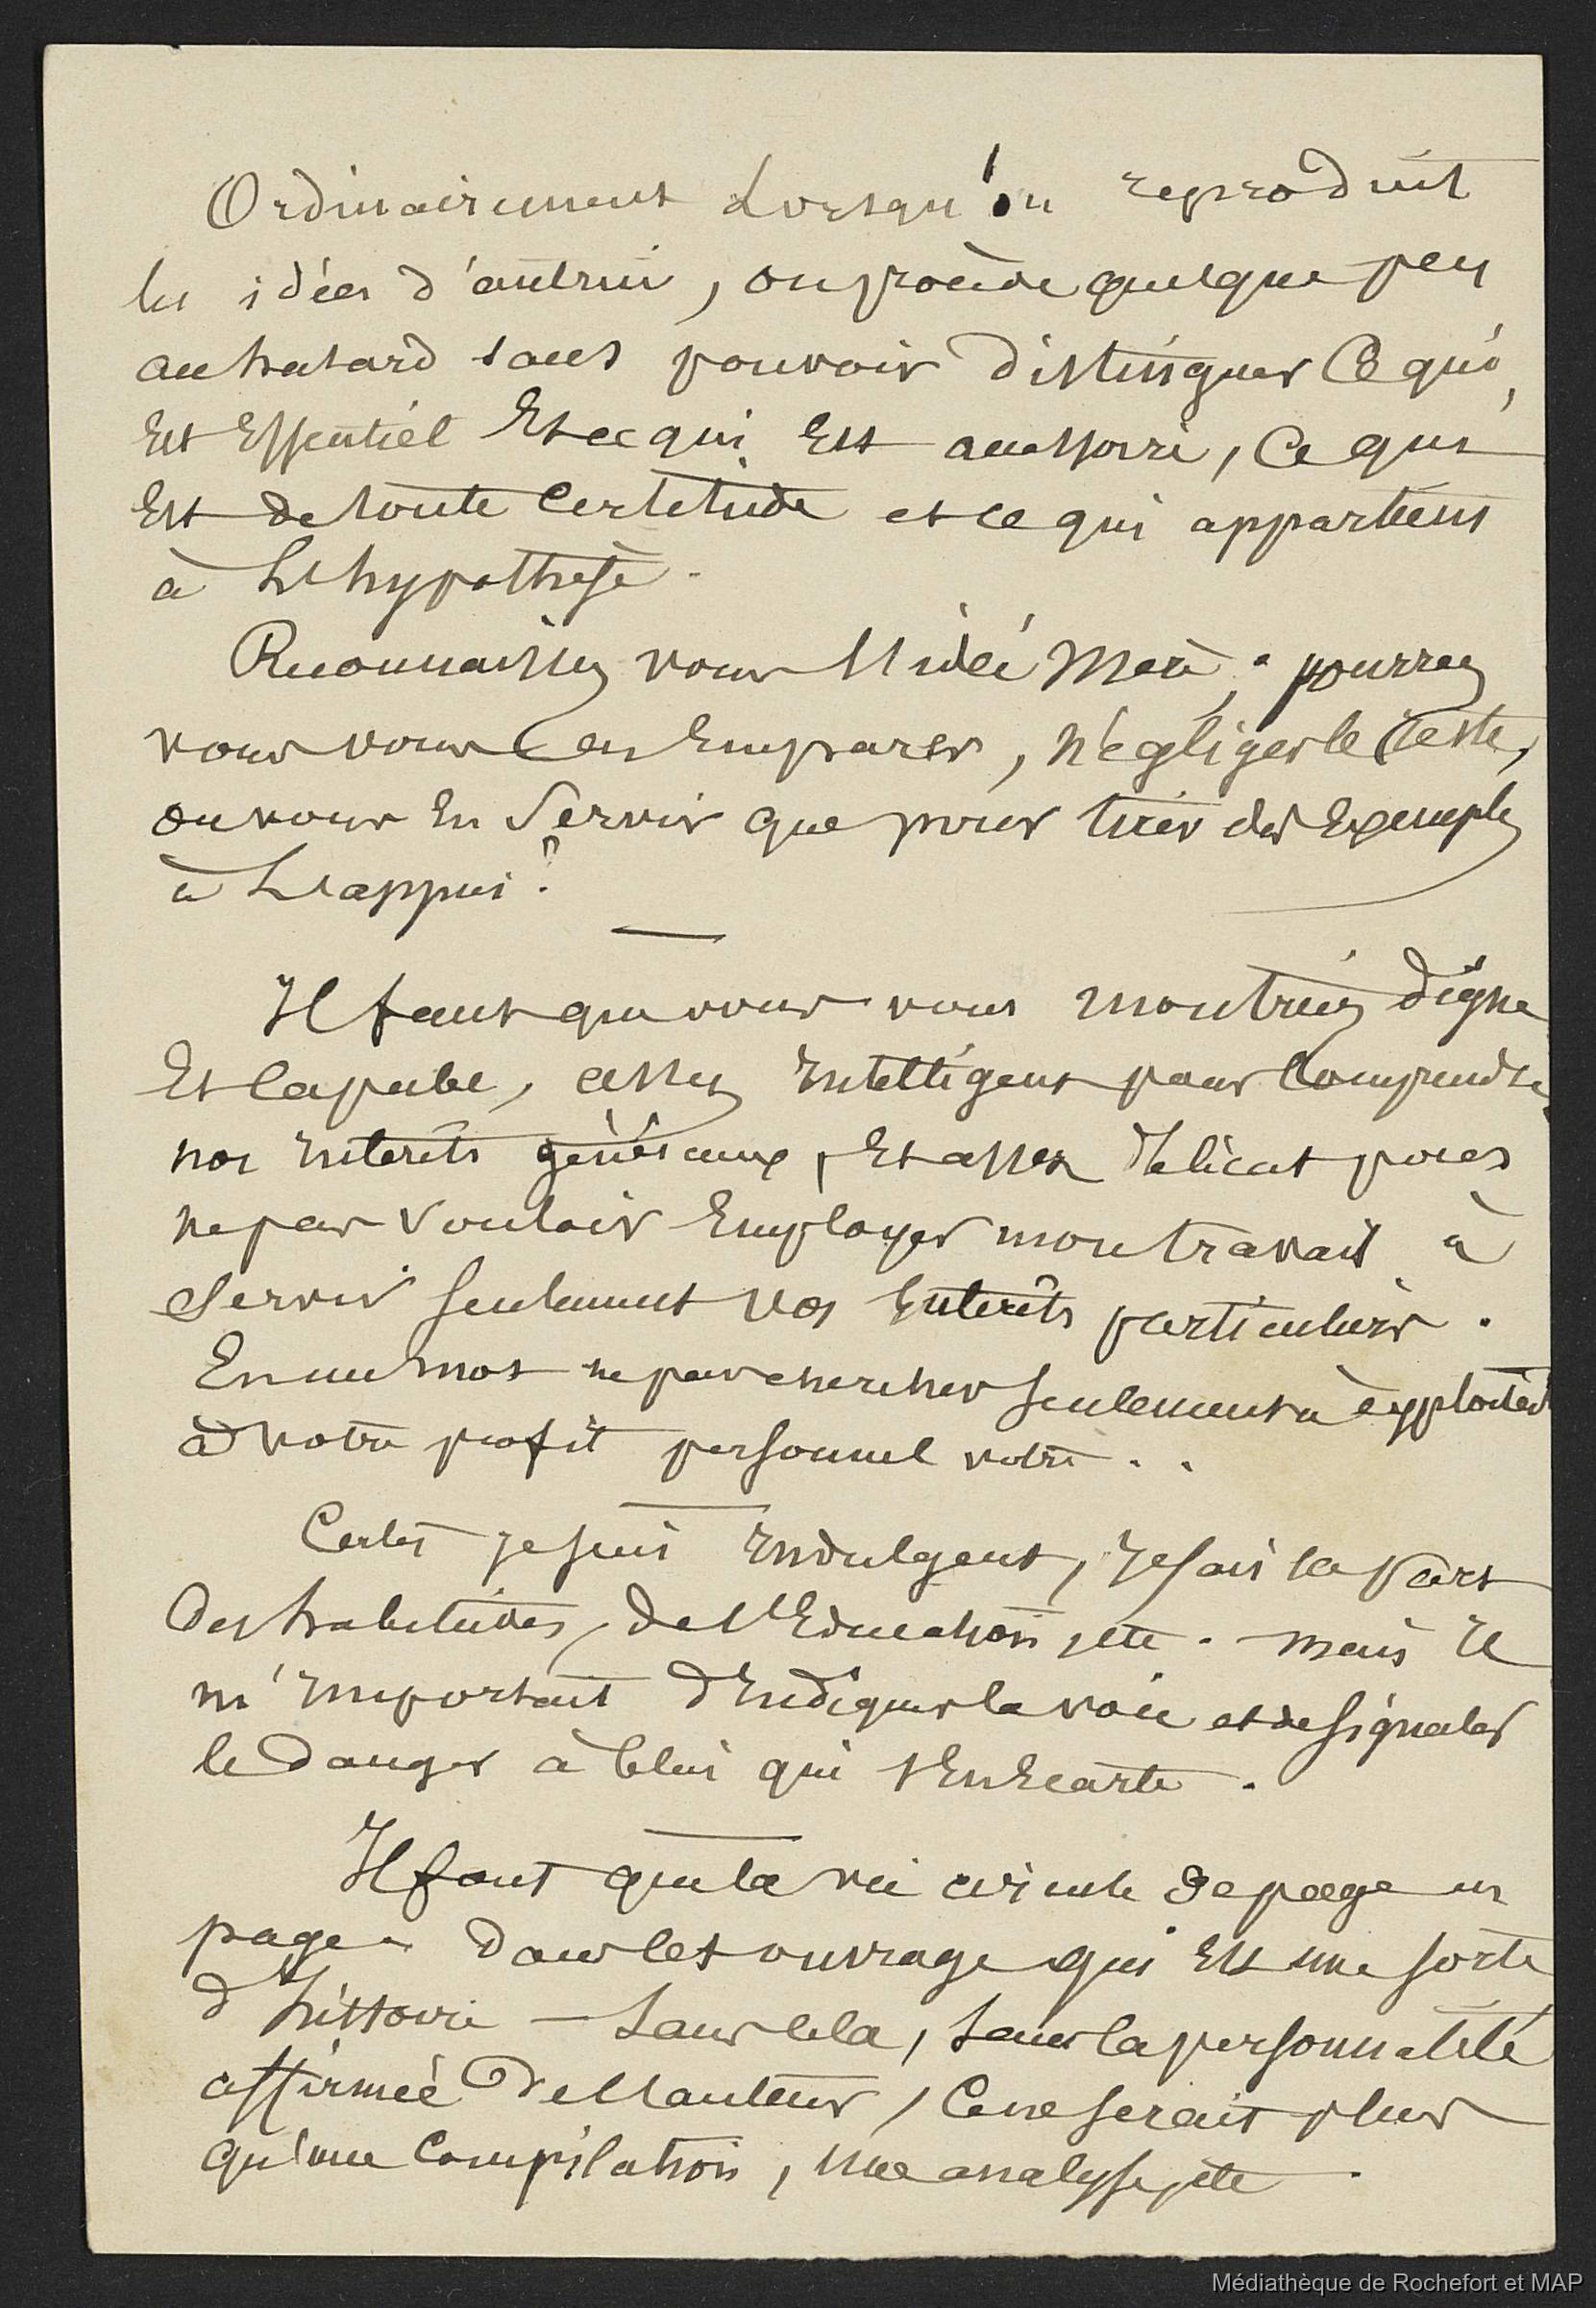 Ordinairement Lorsqu'on reproduit
les idées d'autrui, on procède quelque peu
au hasard sans pouvoir distinguer Ce qui,
Est Essentiel Et ce qui Est accessoire, Ce qui
Est de toute Certitude et ce qui appartient
à L'hypothèse.
Reconnaissez vous l'idée Mère ; pourrez
vous vous en Emparer, négliger le reste,
ou vous En Servir que pour tirer des Exemples
à L'appui ?
Il faut que vous vous montriez digne
Et Capable, assez Intelligent pour Comprendre
nos Interêts généraux, Et assez délicat pour
ne pas Vouloir Employer mon travail à
Servir seulement vos Interêts particuliers.
En un mot ne pas chercher seulement à exploiter
à votre profit personnel votre . .
Certes je suis Indulgent, je sais la part
des habitudes, de l'Education, etc. mais Il
m'Importait d'Indiquer la voie et de signaler
le danger à Celui qui s'En Ecarte.
Il faut que la vie circule de page en
page dans cet ouvrage qui Est une sorte
d'histoire — Sans Cela, Sans la personnalité
affirmée de l'auteur, Ce ne serait plus
qu'une Compilation, une analyse, etc.
Médiathèque de Rochefort et MAP